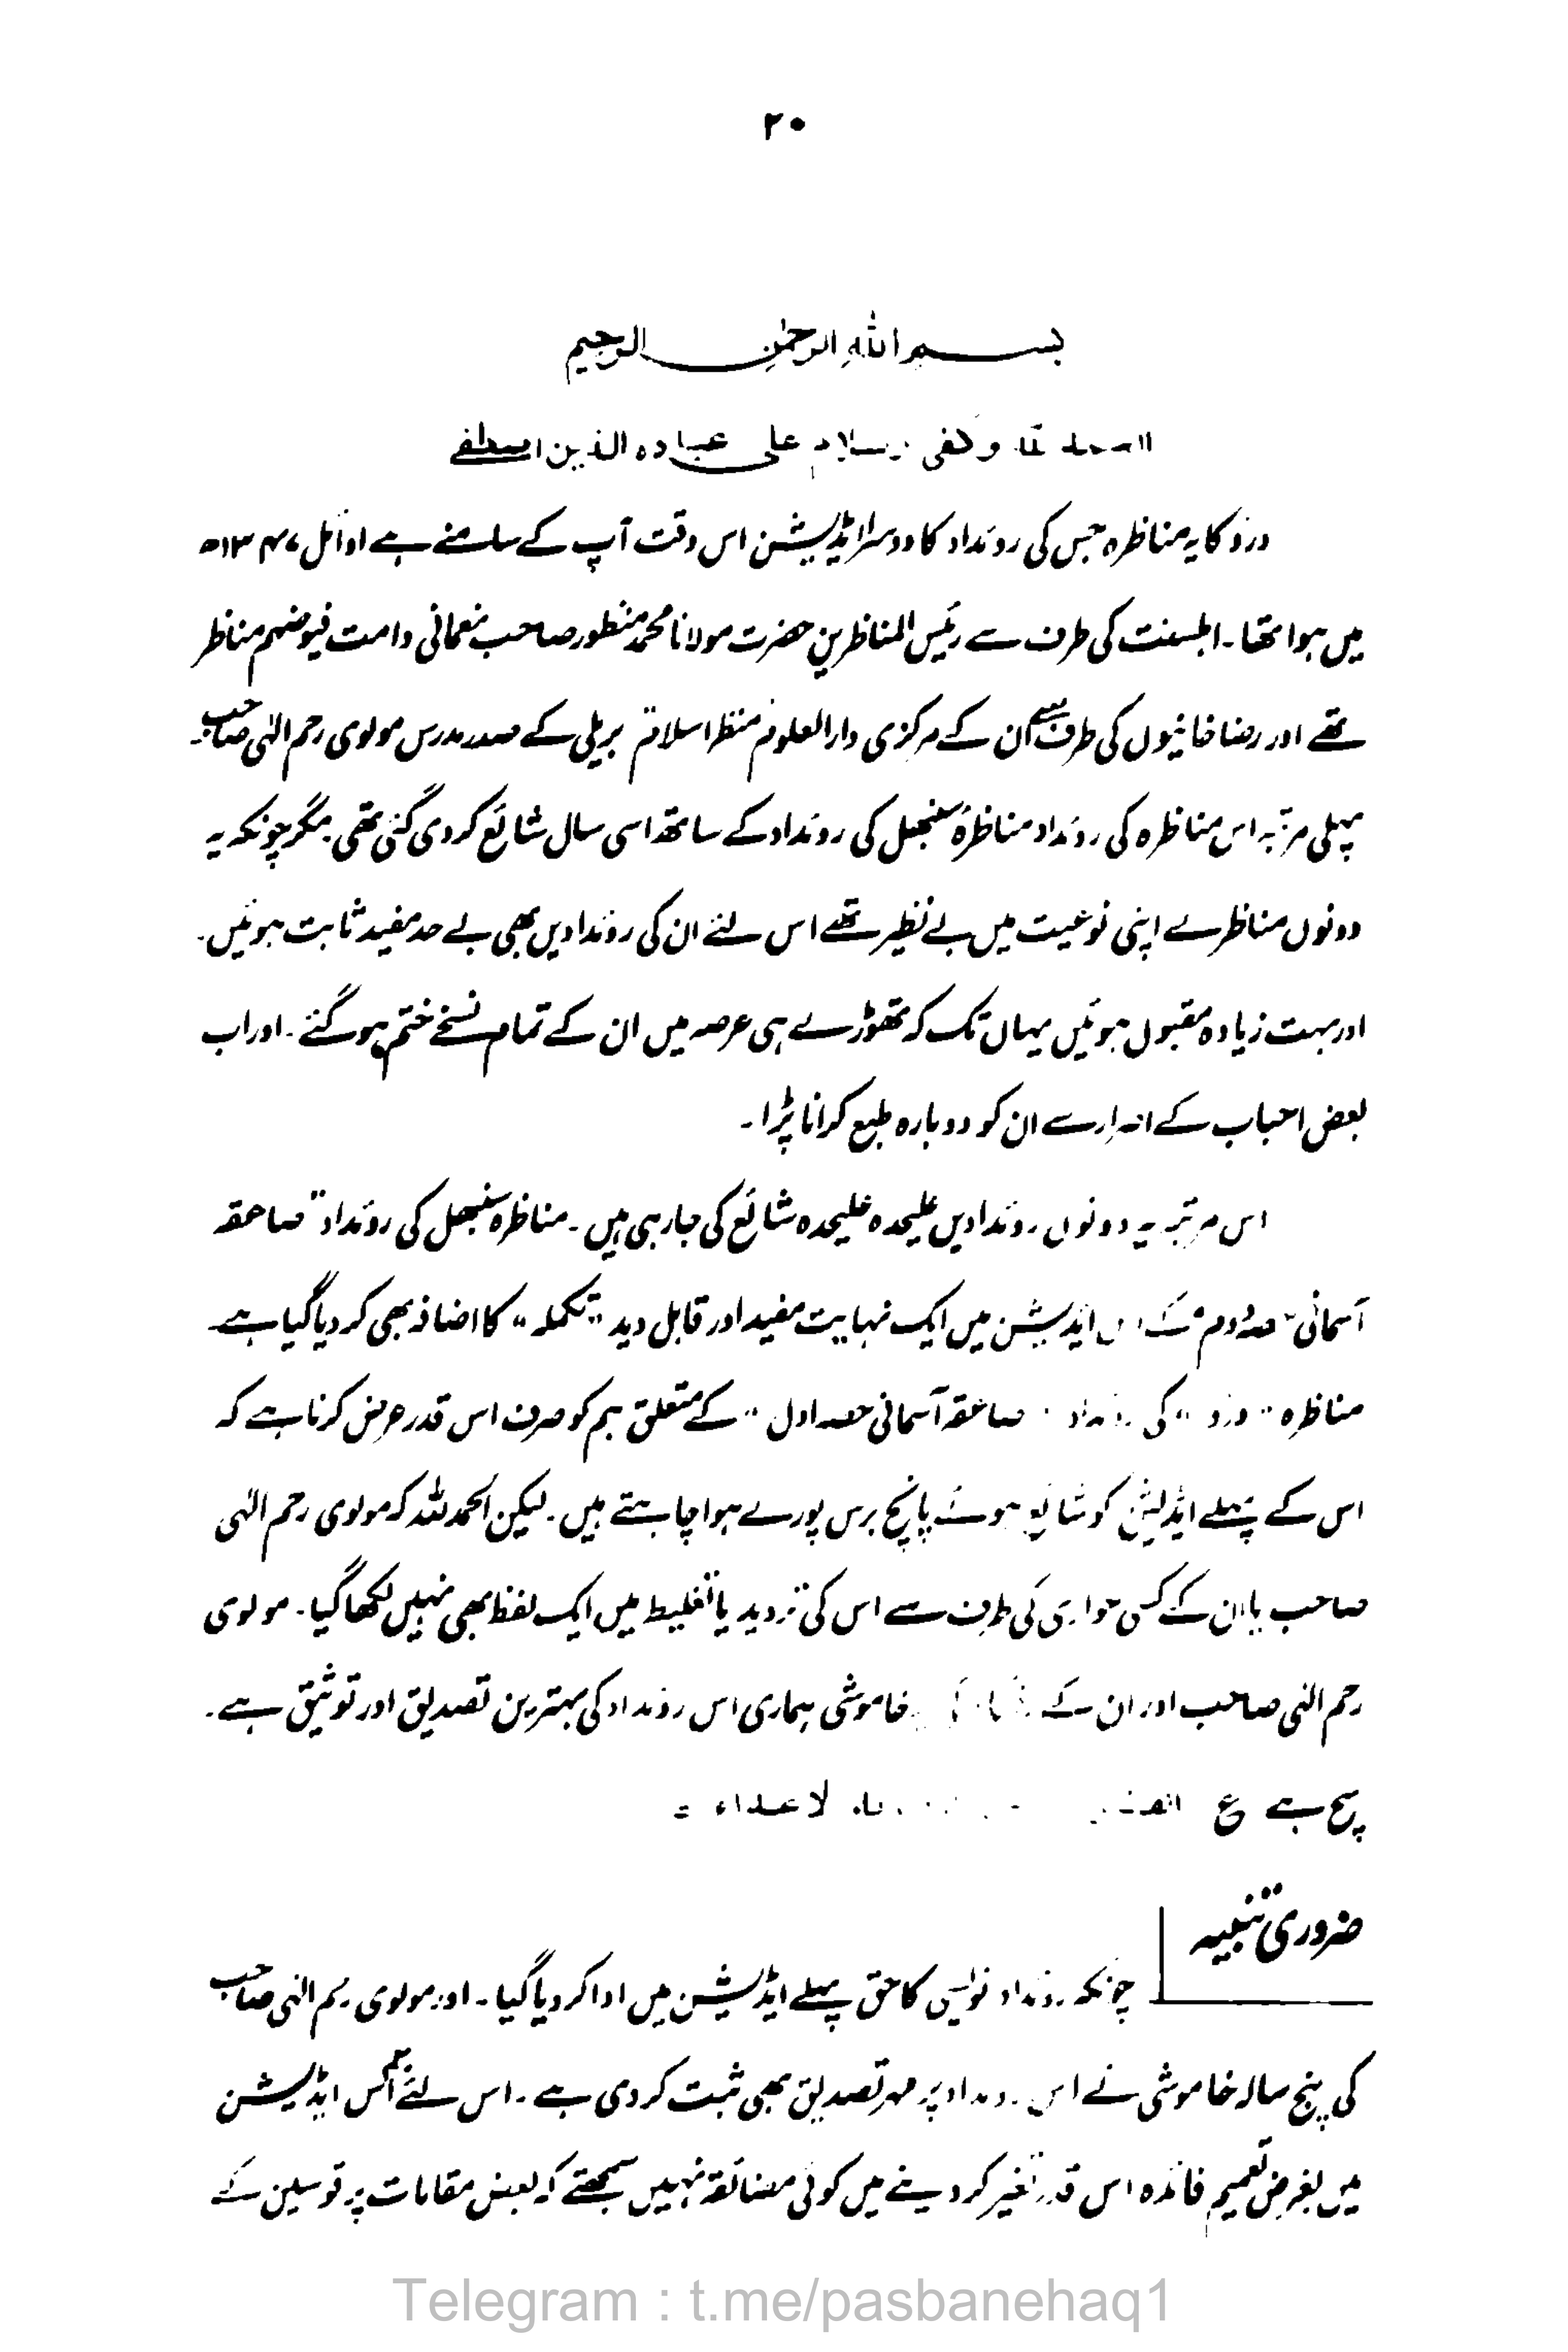 ۲۰
بسم اللہ الرحمٰن الرحیم
الحمد للہ وکفی وسلام علی عبادہ الذین اصطفے
درؤ کا یہ مناظرہ جس کی روئداد کا دوسرا ایڈیشن اس وقت آپ کے سامنے ہے اوائل ۱۳۴۷ھ
میں ہوا تھا۔ اہلسنت کی طرف سے رئیس المناظرین حضرت مولانا محمد منظور صاحب نعمانی دامت فیوضہم مناظر
تھے اور رضا خانیوں کی طرف سے ان کے مرکزی دارالعلوم منظر اسلام بریلی کے صدر مدرس مولوی رحم الٰہی صاحب
پہلی مرتبہ اس مناظرہ کی روئداد مناظرۂ سنبھل کی روئداد کے ساتھ اسی سال شائع کر دی گئی تھی۔ مگر چونکہ یہ
دونوں مناظرے اپنی نوعیت میں بے نظیر تھے اس لئے ان کی روئدادیں بھی بے حد مفید ثابت ہوئیں۔
اور بہت زیادہ مقبول ہوئیں یہاں تک کہ تھوڑے ہی عرصہ میں ان کے تمام نسخے ختم ہو گئے۔ اور اب
بعض احباب کے اصرار سے ان کو دوبارہ طبع کرانا پڑا۔
اس مرتبہ یہ دونوں روئدادیں علیحدہ علیحدہ شائع کی جا رہی ہیں۔ مناظرہ سنبھل کی روئداد "صاعقہ
آسمانی" حصہ دوم کے اس ایڈیشن میں ایک نہایت مفید اور قابل دید "تکملہ" کا اضافہ بھی کر دیا گیا ہے
مناظرہ "درؤ" کی روئداد "صاعقہ آسمانی حصہ اول" کے متعلق ہم کو صرف اس قدر عرض کرنا ہے کہ
اس کے پہلے ایڈیشن کو شائع ہوئے پانچ برس پورے ہوا چاہتے ہیں۔ لیکن الحمد للہ کہ مولوی رحم الٰہی
صاحب یا ان کے کسی حواری کی طرف سے اس کی تردید یا تغلیط میں ایک لفظ بھی نہیں لکھا گیا۔ مولوی
رحم الٰہی صاحب اور ان کے خاموشی ہماری اس روئداد کی بہترین تصدیق اور توثیق ہے۔
سچ ہے ع الاعداء =
ضروری تنبیہ
چونکہ روئداد نویسی کا حق پہلے ایڈیشن میں ادا کر دیا گیا۔ اور مولوی رحم الٰہی صاحب
کی پنج سالہ خاموشی نے اس روئداد پر مہر تصدیق بھی ثبت کر دی ہے۔ اس لئے ہم اس ایڈیشن
میں بغرض تعمیم فائدہ اس قدر تغیر کر دینے میں کوئی مضائقہ نہیں سمجھتے کہ بعض مقامات پر قوسین کے
Telegram : t.me/pasbanehaq1